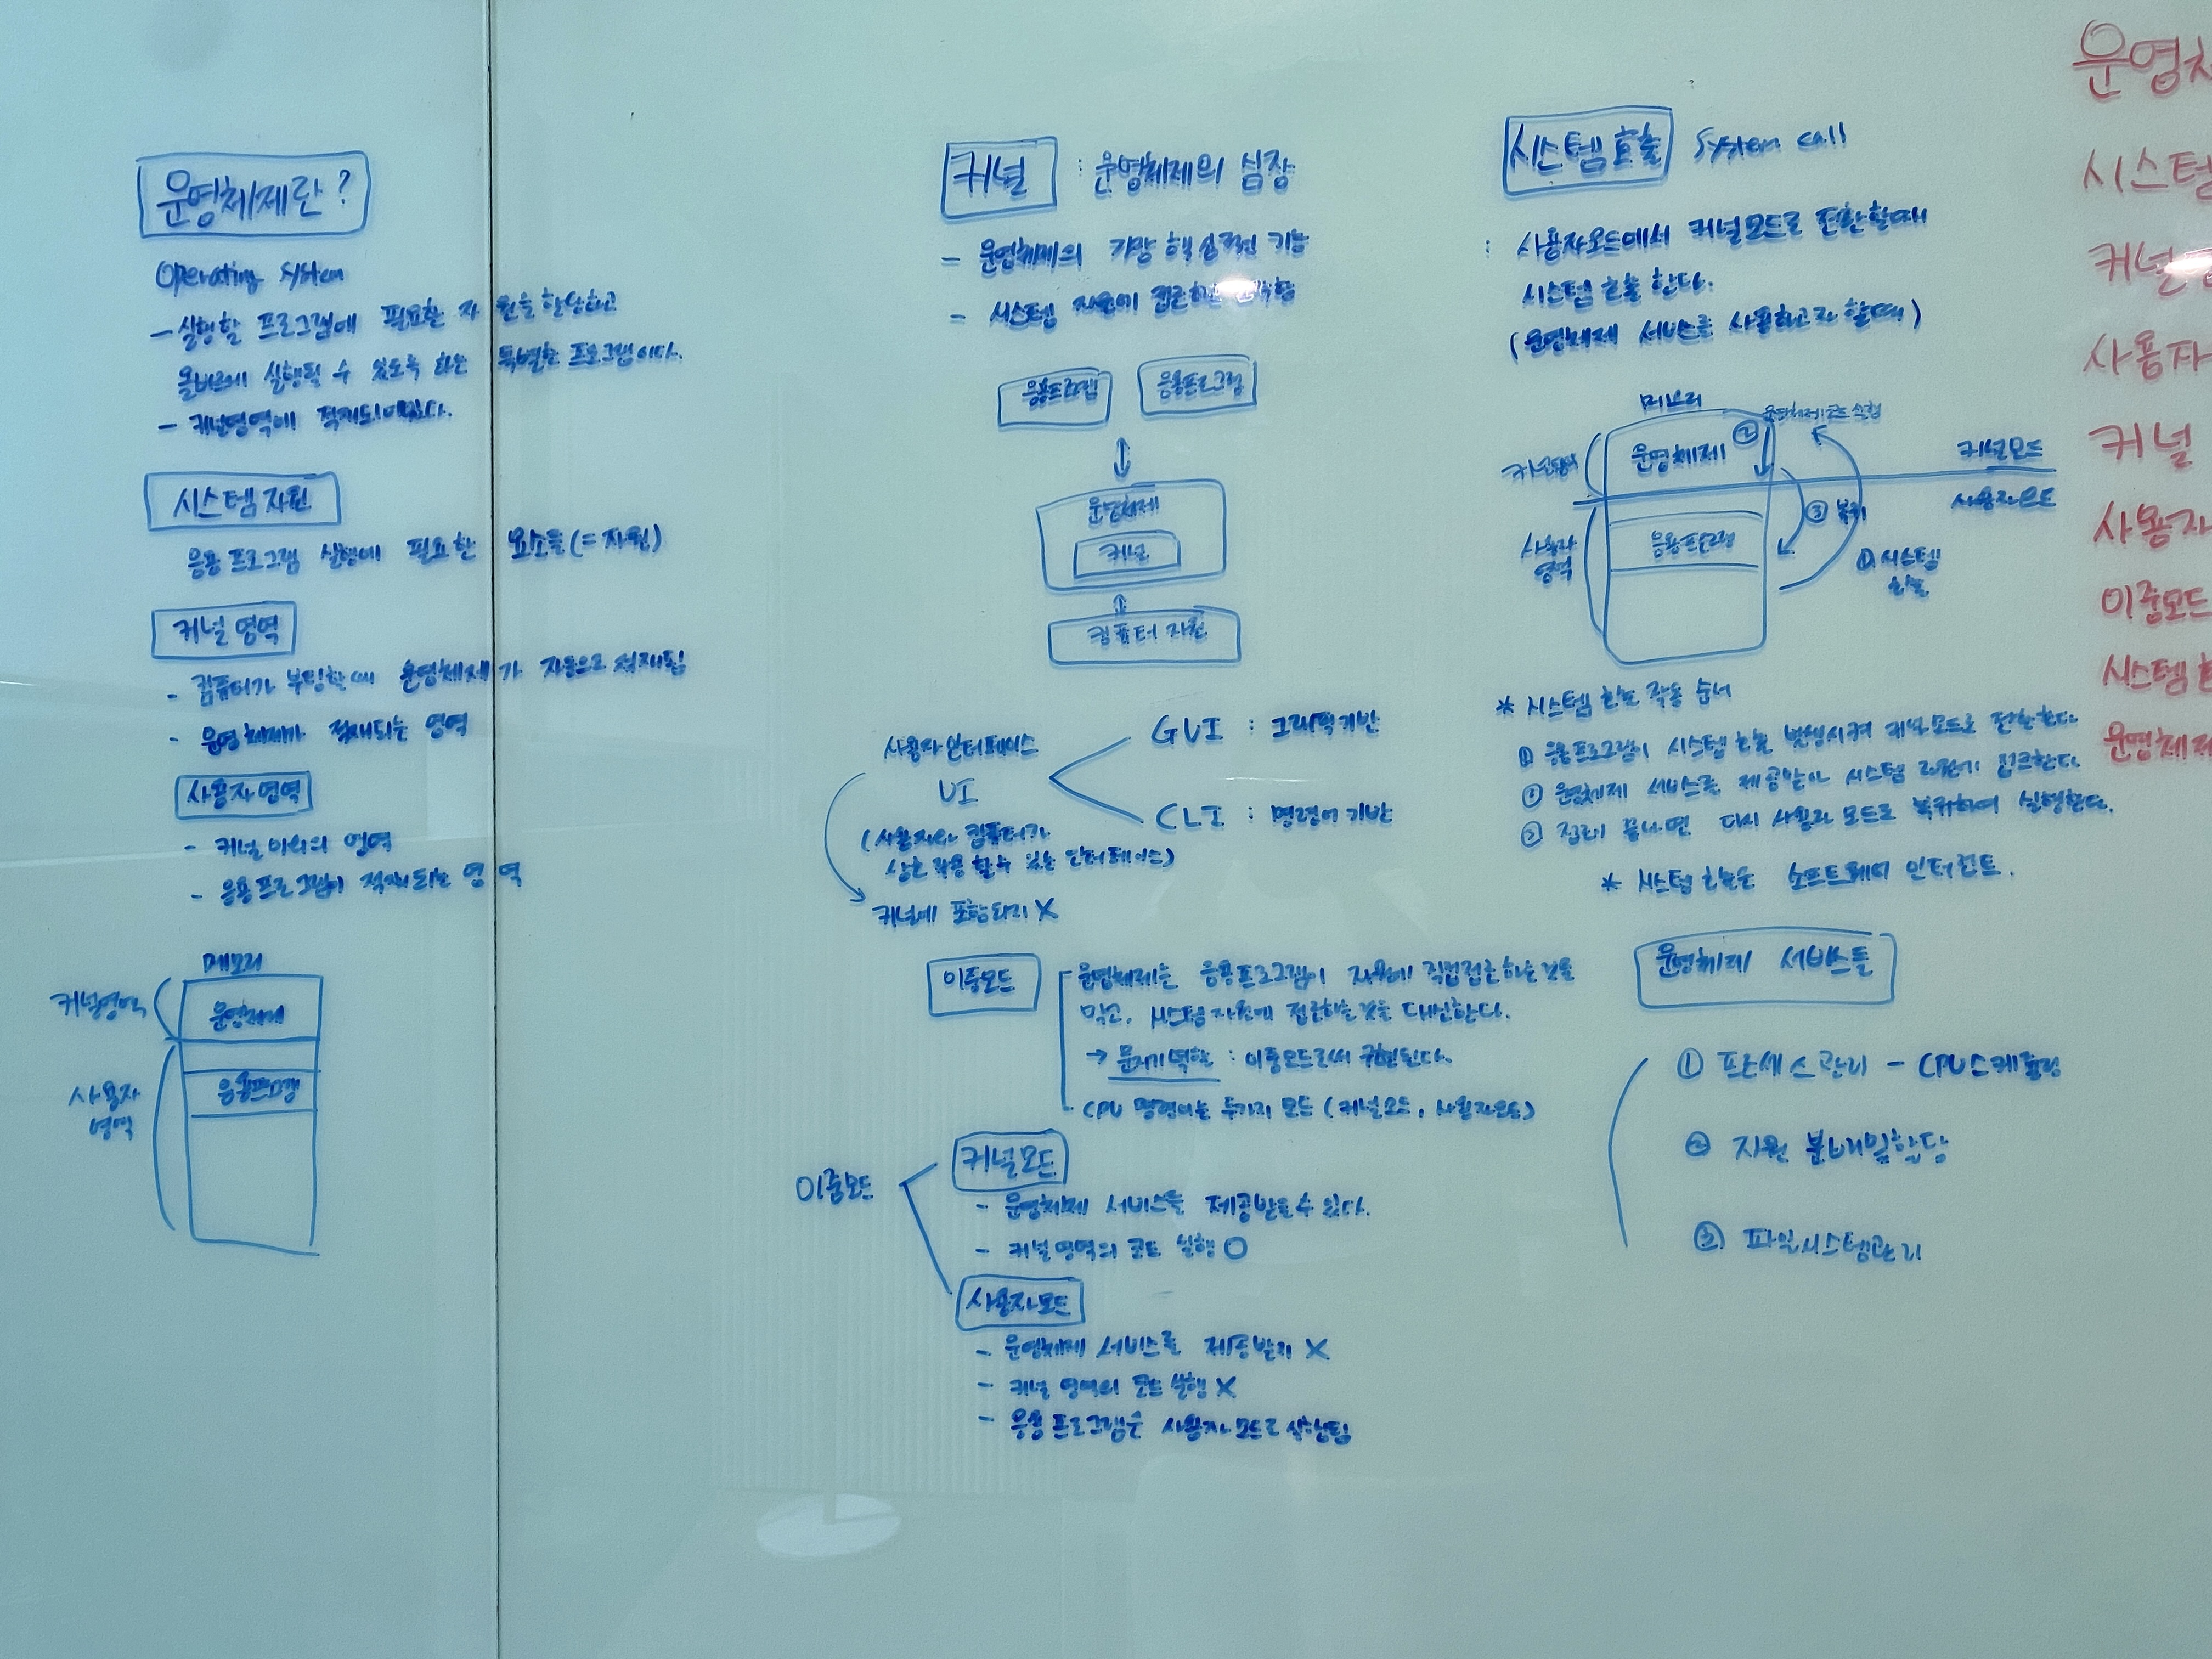 운영체제란?
Operating System
- 실행할 프로그램에 필요한 자원을 할당하고
올바르게 실행될 수 있도록 하는 특별한 프로그램이다.
- 커널영역에 적재되어있다.
시스템 자원
응용 프로그램 실행에 필요한 요소들(=자원)
커널 영역
- 컴퓨터가 부팅할때 운영체제가 자동으로 적재됨
- 운영체제가 적재되는 영역
사용자영역
- 커널 이외의 영역
- 응용프로그램이 적재되는 영역
메모리
커널영역
운영체제
사용자
영역
응용프로그램
커널 : 운영체제의 심장
- 운영체제의 가장 핵심적인 기능
- 시스템 자원에 접근하는
응용프로그램
응용프로그램
운영체제
커널
컴퓨터 자원
사용자 인터페이스
UI
GUI : 그래픽기반
CLI : 명령어 기반
(사용자와 컴퓨터가
상호작용 할수 있는 인터페이스)
커널에 포함되지 X
이중모드
운영체제는 응용프로그램이 자원에 직접접근하는것을
막고, 시스템자원에 접근하는것을 대신한다.
→ 문지기 역할 : 이중모드로써 구현된다.
- CPU 명령어는 두가지 모드 (커널모드, 사용자모드)
이중모드
커널모드
- 운영체제 서비스를 제공받을수 있다.
- 커널 영역의 코드 실행 O
사용자모드
- 운영체제 서비스를 제공받지 X
- 커널 영역의 코드 실행 X
- 응용프로그램은 사용자모드로 실행됨
시스템 호출 System call
: 사용자모드에서 커널모드로 전환할때
시스템 호출 한다.
(운영체제 서비스를 사용하고자 할때)
메모리
운영체제코드실행
커널영역
운영체제
②
커널모드
사용자모드
③ 복귀
사용자
영역
응용프로그램
① 시스템
호출
* 시스템 호출 작동 순서
① 응용프로그램이 시스템 호출 발생시켜 커널모드로 전환한다
② 운영체제 서비스를 제공받아 시스템 자원에 접근한다.
③ 접근이 끝나면 다시 사용자 모드로 복귀하여 실행한다.
* 시스템 호출은 소프트웨어 인터럽트.
운영체제 서비스들
① 프로세스관리 - CPU스케줄링
② 자원 분배및할당
③ 파일시스템관리
운영체
시스템
커널
사용자
커널
사용자
이중모드
시스템
운영체제